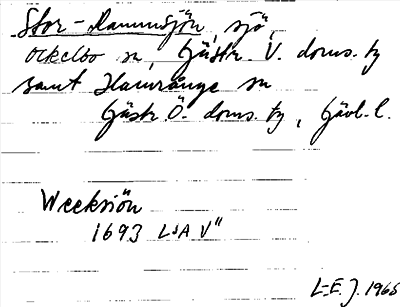 Stor-Hamnsjön, sjö,
Ockelbo sn, Gästr. V. doms. tg
samt Hamrånge sn
Gästr. Ö. doms. tg, Gävl. l.
Weeksiön
1693 LSA V"
L-E. J. 1965